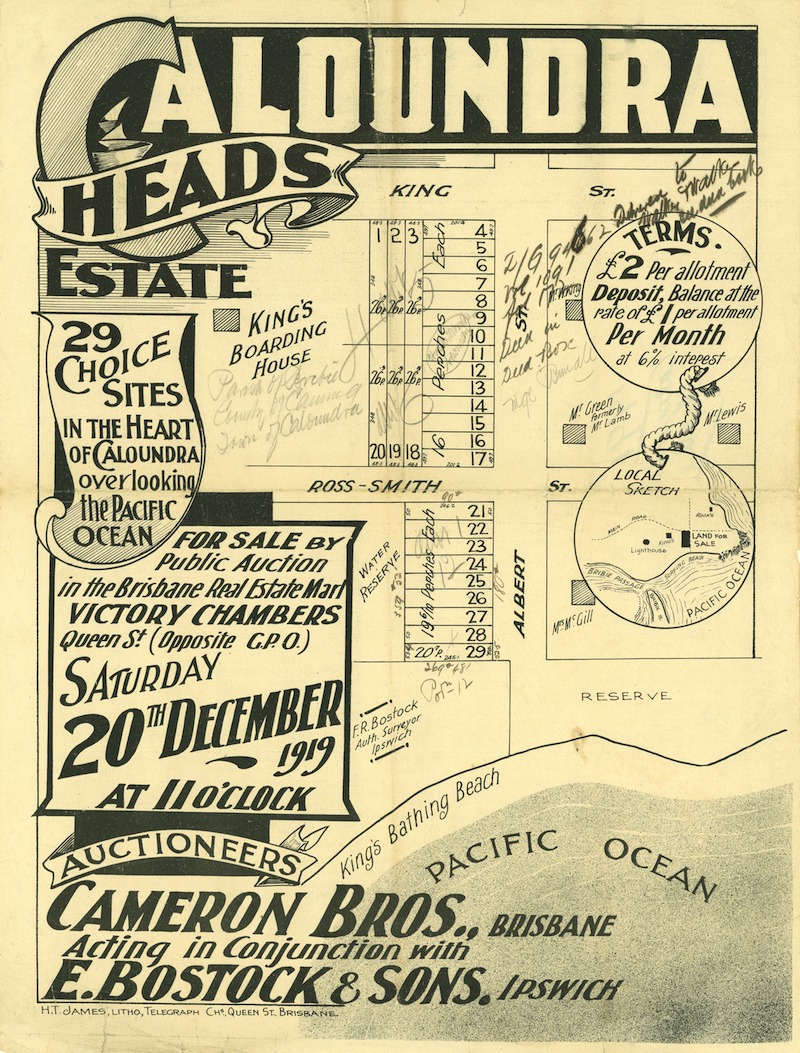 CALOUNDRA
HEADS
ESTATE
29
CHOICE
SITES
IN THE HEART
OF CALOUNDRA
overlooking
the PACIFIC
OCEAN
FOR SALE BY
Public Auction
in the Brisbane Real Estate Mart
VICTORY CHAMBERS
Queen St (Opposite G.P.O.)
SATURDAY
20TH DECEMBER
1919
AT 11 O'CLOCK
AUCTIONEERS
CAMERON BROS., BRISBANE
Acting in Conjunction with
E. BOSTOCK & SONS. IPSWICH
H.T. JAMES, LITHO, TELEGRAPH CHS, QUEEN ST. BRISBANE.
KING ST.
KING'S
BOARDING
HOUSE
1 2 3
4
5
6
7
8
9
10
11
12
13
14
15
16
17
20 19 18
16 Perches Each
ROSS-SMITH ST.
WATER
RESERVE
21
22
23
24
25
26
27
28
20 P. 29
Perches Each
ALBERT
ST.
F.R. Bostock
Auth. Surveyor
Ipswich
King's Bathing Beach
PACIFIC OCEAN
RESERVE
Mrs McGill
Mr Green
formerly
Mr Lamb
Mr Lewis
to
Walker
TERMS.
£2 Per allotment
Deposit, Balance at the
rate of £1 per allotment
Per Month
at 6% interest
Deed in
Town of Caloundra
LOCAL
SKETCH
MAIN ROAD
KINGS
Lighthouse
LAND FOR
SALE
BRIBIE PASSAGE
PACIFIC OCEAN